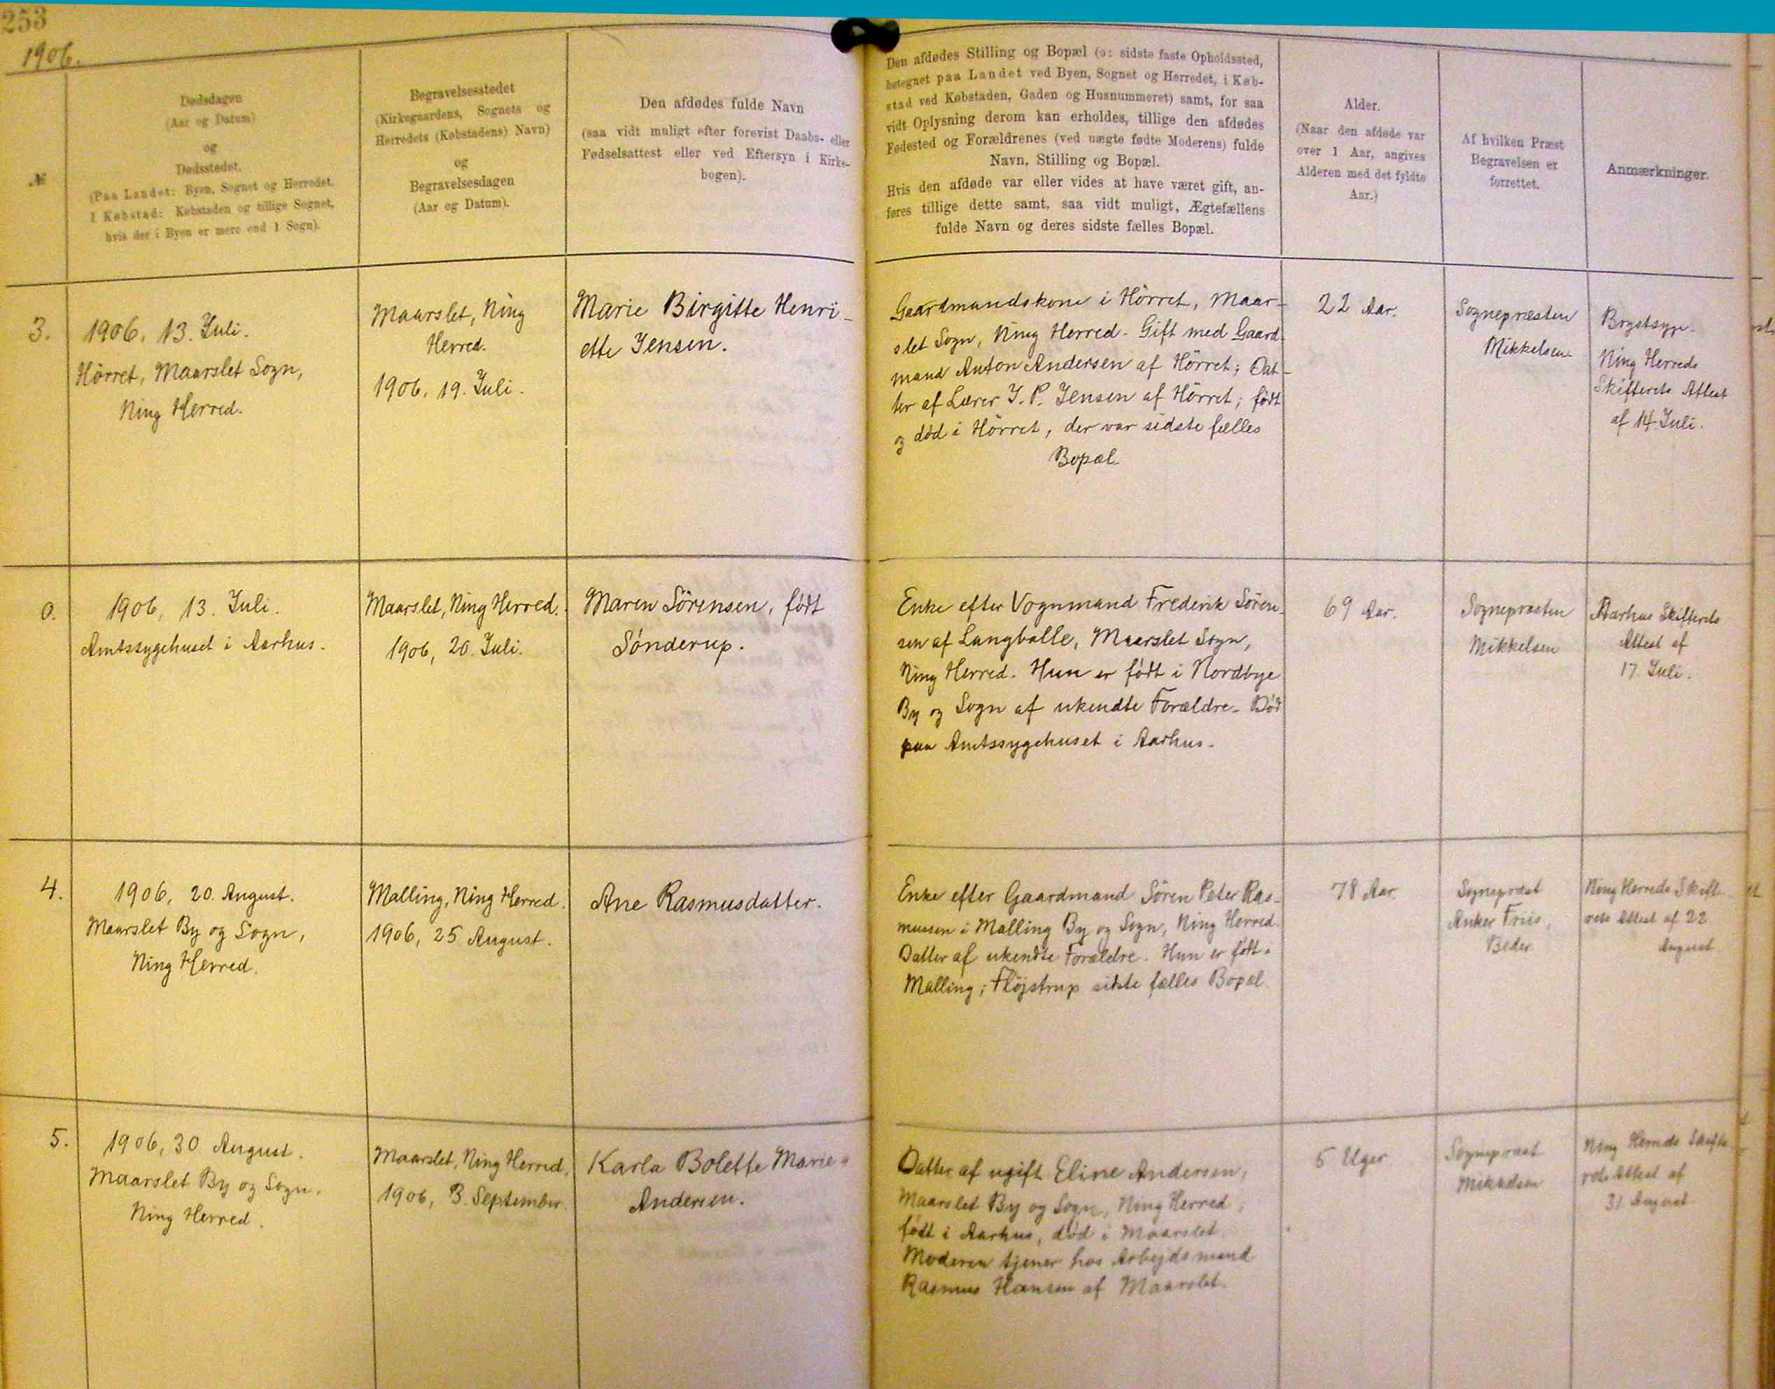 253
1906.
№
Dødsdagen
(Aar og Datum)
og
Dødsstedet.
(Paa Landet: Byen, Sognet og Herredet.
I Købstad: Købstaden og tillige Sognet,
hvis der i Byen er mere end 1 Sogn).
Begravelsesstedet
(Kirkegaardens, Sognets og
Herredets (Købstadens) Navn)
og
Begravelsesdagen
(Aar og Datum).
Den afdødes fulde Navn
(saa vidt muligt efter forevist Daabs- eller
Fødselsattest eller ved Eftersyn i Kirke-
bogen).
Den afdødes Stilling og Bopæl (ɔ: sidste faste Opholdssted,
betegnet paa Landet ved Byen, Sognet og Herredet, i Køb-
stad ved Købstaden, Gaden og Husnummeret) samt, for saa
vidt Oplysning derom kan erholdes, tillige den afdødes
Fødested og Forældrenes (ved uægte fødte Moderens) fulde
Navn, Stilling og Bopæl.
Hvis den afdøde var eller vides at have været gift, an-
føres tillige dette samt, saa vidt muligt, Ægtefællens
fulde Navn og deres sidste fælles Bopæl.
Alder.
(Naar den afdøde var
over 1 Aar, angives
Alderen med det fyldte
Aar.)
Af hvilken Præst
Begravelsen er
forrettet.
Anmærkninger.
3.
1906, 13. Juli.
Hörret, Maarslet Sogn,
Ning Herred.
Maarslet, Ning
Herred.
1906, 19. Juli.
Marie Birgitte Henri-
ette Jensen.
Gaardmandskone i Hörret, Maar-
slet Sogn, Ning Herred. Gift med Gaard
mand Anton Andersen af Hörret; Dat-
ter af Lærer J. P. Jensen af Hörret; født
og død i Hörret, der var sidste fælles
Bopæl.
22 Aar.
Sognepræsten
Mikkelsen
Brystsyge.
Ning Herreds
Skifterets Attest
af 14. Juli.
0.
1906, 13. Juli.
Amtssygehuset i Aarhus.
Maarslet, Ning Herred.
1906, 20. Juli.
Maren Sörensen, født
Sönderup.
Enke efter Vognmand Frederik Sören-
sen af Langballe, Maarslet Sogn,
Ning Herred. Hun er født i Nordbye
By og Sogn af ukendte Forældre. Död
paa Amtssygehuset i Aarhus.
69 Aar.
Sognepræsten
Mikkelsen
Aarhus Skifterets
Attest af
17. Juli.
4.
1906, 20. August.
Maarslet By og Sogn,
Ning Herred.
Malling, Ning Herred.
1906, 25 August.
Ane Rasmusdatter.
Enke efter Gaardmand Sören Peter Ras-
mussen i Malling By og Sogn, Ning Herred.
Datter af ukendte Forældre. Hun er født
Malling; Fløjstrup sidste fælles Bopæl.
78 Aar
Sognepræst
Anker Friis,
Beder
Ning Herreds Skift
rets Attest af 22
August
5.
1906, 30 August.
Maarslet By og Sogn,
Ning Herred.
Maarslet, Ning Herred,
1906, 3. September
Karla Bolette Marie
Andersen.
Datter af ugift Eline Andersen,
Maarslet By og Sogn, Ning Herred,
født i Aarhus, död i Maarslet.
Moderen tjener hos Arbejdsmand
Rasmus Hansen af Maarslet.
5 Uger
Sognepræst
Mikkelsen
Ning Herreds Skifte
rets Attest af
31 August